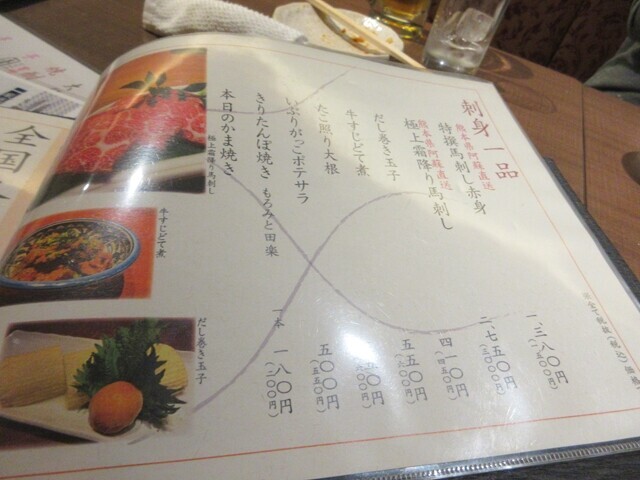 刺身一品
熊本県阿蘇直送
特撰馬刺し赤身
一、三八〇円
熊本県阿蘇直送
極上霜降り馬刺し
二、七五〇円
だし巻き玉子
四一〇円
牛すじどて煮
五五〇円
たこ照り大根
いぶりがっこポテサラ
五〇〇円
(五五〇円)
きりたんぽ焼き もろみと田楽
一本 一八〇円
(二〇〇円)
本日のかま焼き
極上霜降り馬刺し
牛すじどて煮
だし巻き玉子
全国